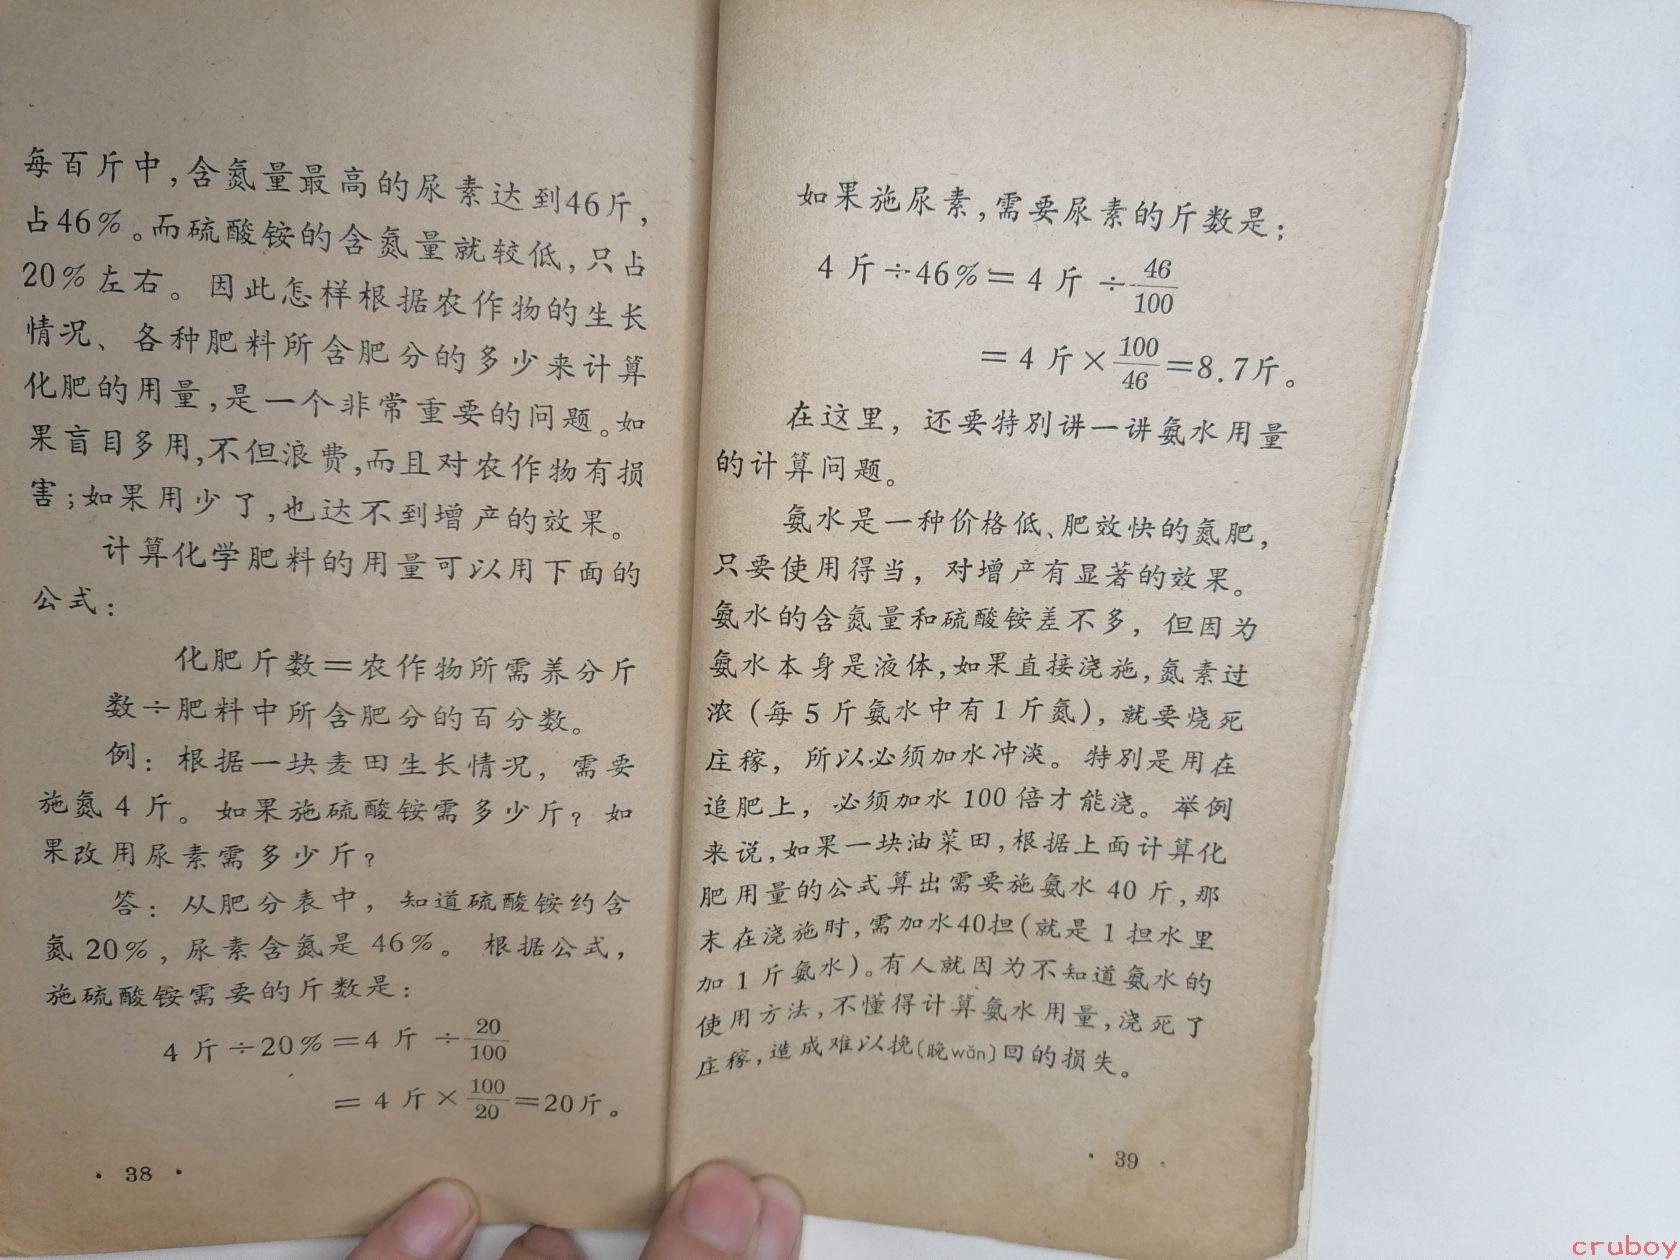 每百斤中，含氮量最高的尿素达到46斤，
占46%。而硫酸铵的含氮量就较低，只占
20%左右。因此怎样根据农作物的生长
情况、各种肥料所含肥分的多少来计算
化肥的用量，是一个非常重要的问题。如
果盲目多用，不但浪费，而且对农作物有损
害；如果用少了，也达不到增产的效果。
计算化学肥料的用量可以用下面的
公式：
化肥斤数＝农作物所需养分斤
数÷肥料中所含肥分的百分数。
例：根据一块麦田生长情况，需要
施氮4斤。如果施硫酸铵需多少斤？如
果改用尿素需多少斤？
答：从肥分表中，知道硫酸铵约含
氮20%，尿素含氮是46%。根据公式，
施硫酸铵需要的斤数是：
4斤÷20%＝4斤÷20/100
＝4斤×100/20＝20斤。
·38·
如果施尿素，需要尿素的斤数是：
4斤÷46%＝4斤÷46/100
＝4斤×100/46＝8.7斤。
在这里，还要特别讲一讲氨水用量
的计算问题。
氨水是一种价格低、肥效快的氮肥，
只要使用得当，对增产有显著的效果。
氨水的含氮量和硫酸铵差不多，但因为
氨水本身是液体，如果直接浇施，氮素过
浓（每5斤氨水中有1斤氮），就要烧死
庄稼，所以必须加水冲淡。特别是用在
追肥上，必须加水100倍才能浇。举例
来说，如果一块油菜田，根据上面计算化
肥用量的公式算出需要施氨水40斤，那
末在浇施时，需加水40担（就是1担水里
加1斤氨水）。有人就因为不知道氨水的
使用方法，不懂得计算氨水用量，浇死了
庄稼，造成难以挽〔晚wǎn〕回的损失。
·39·
cruboy